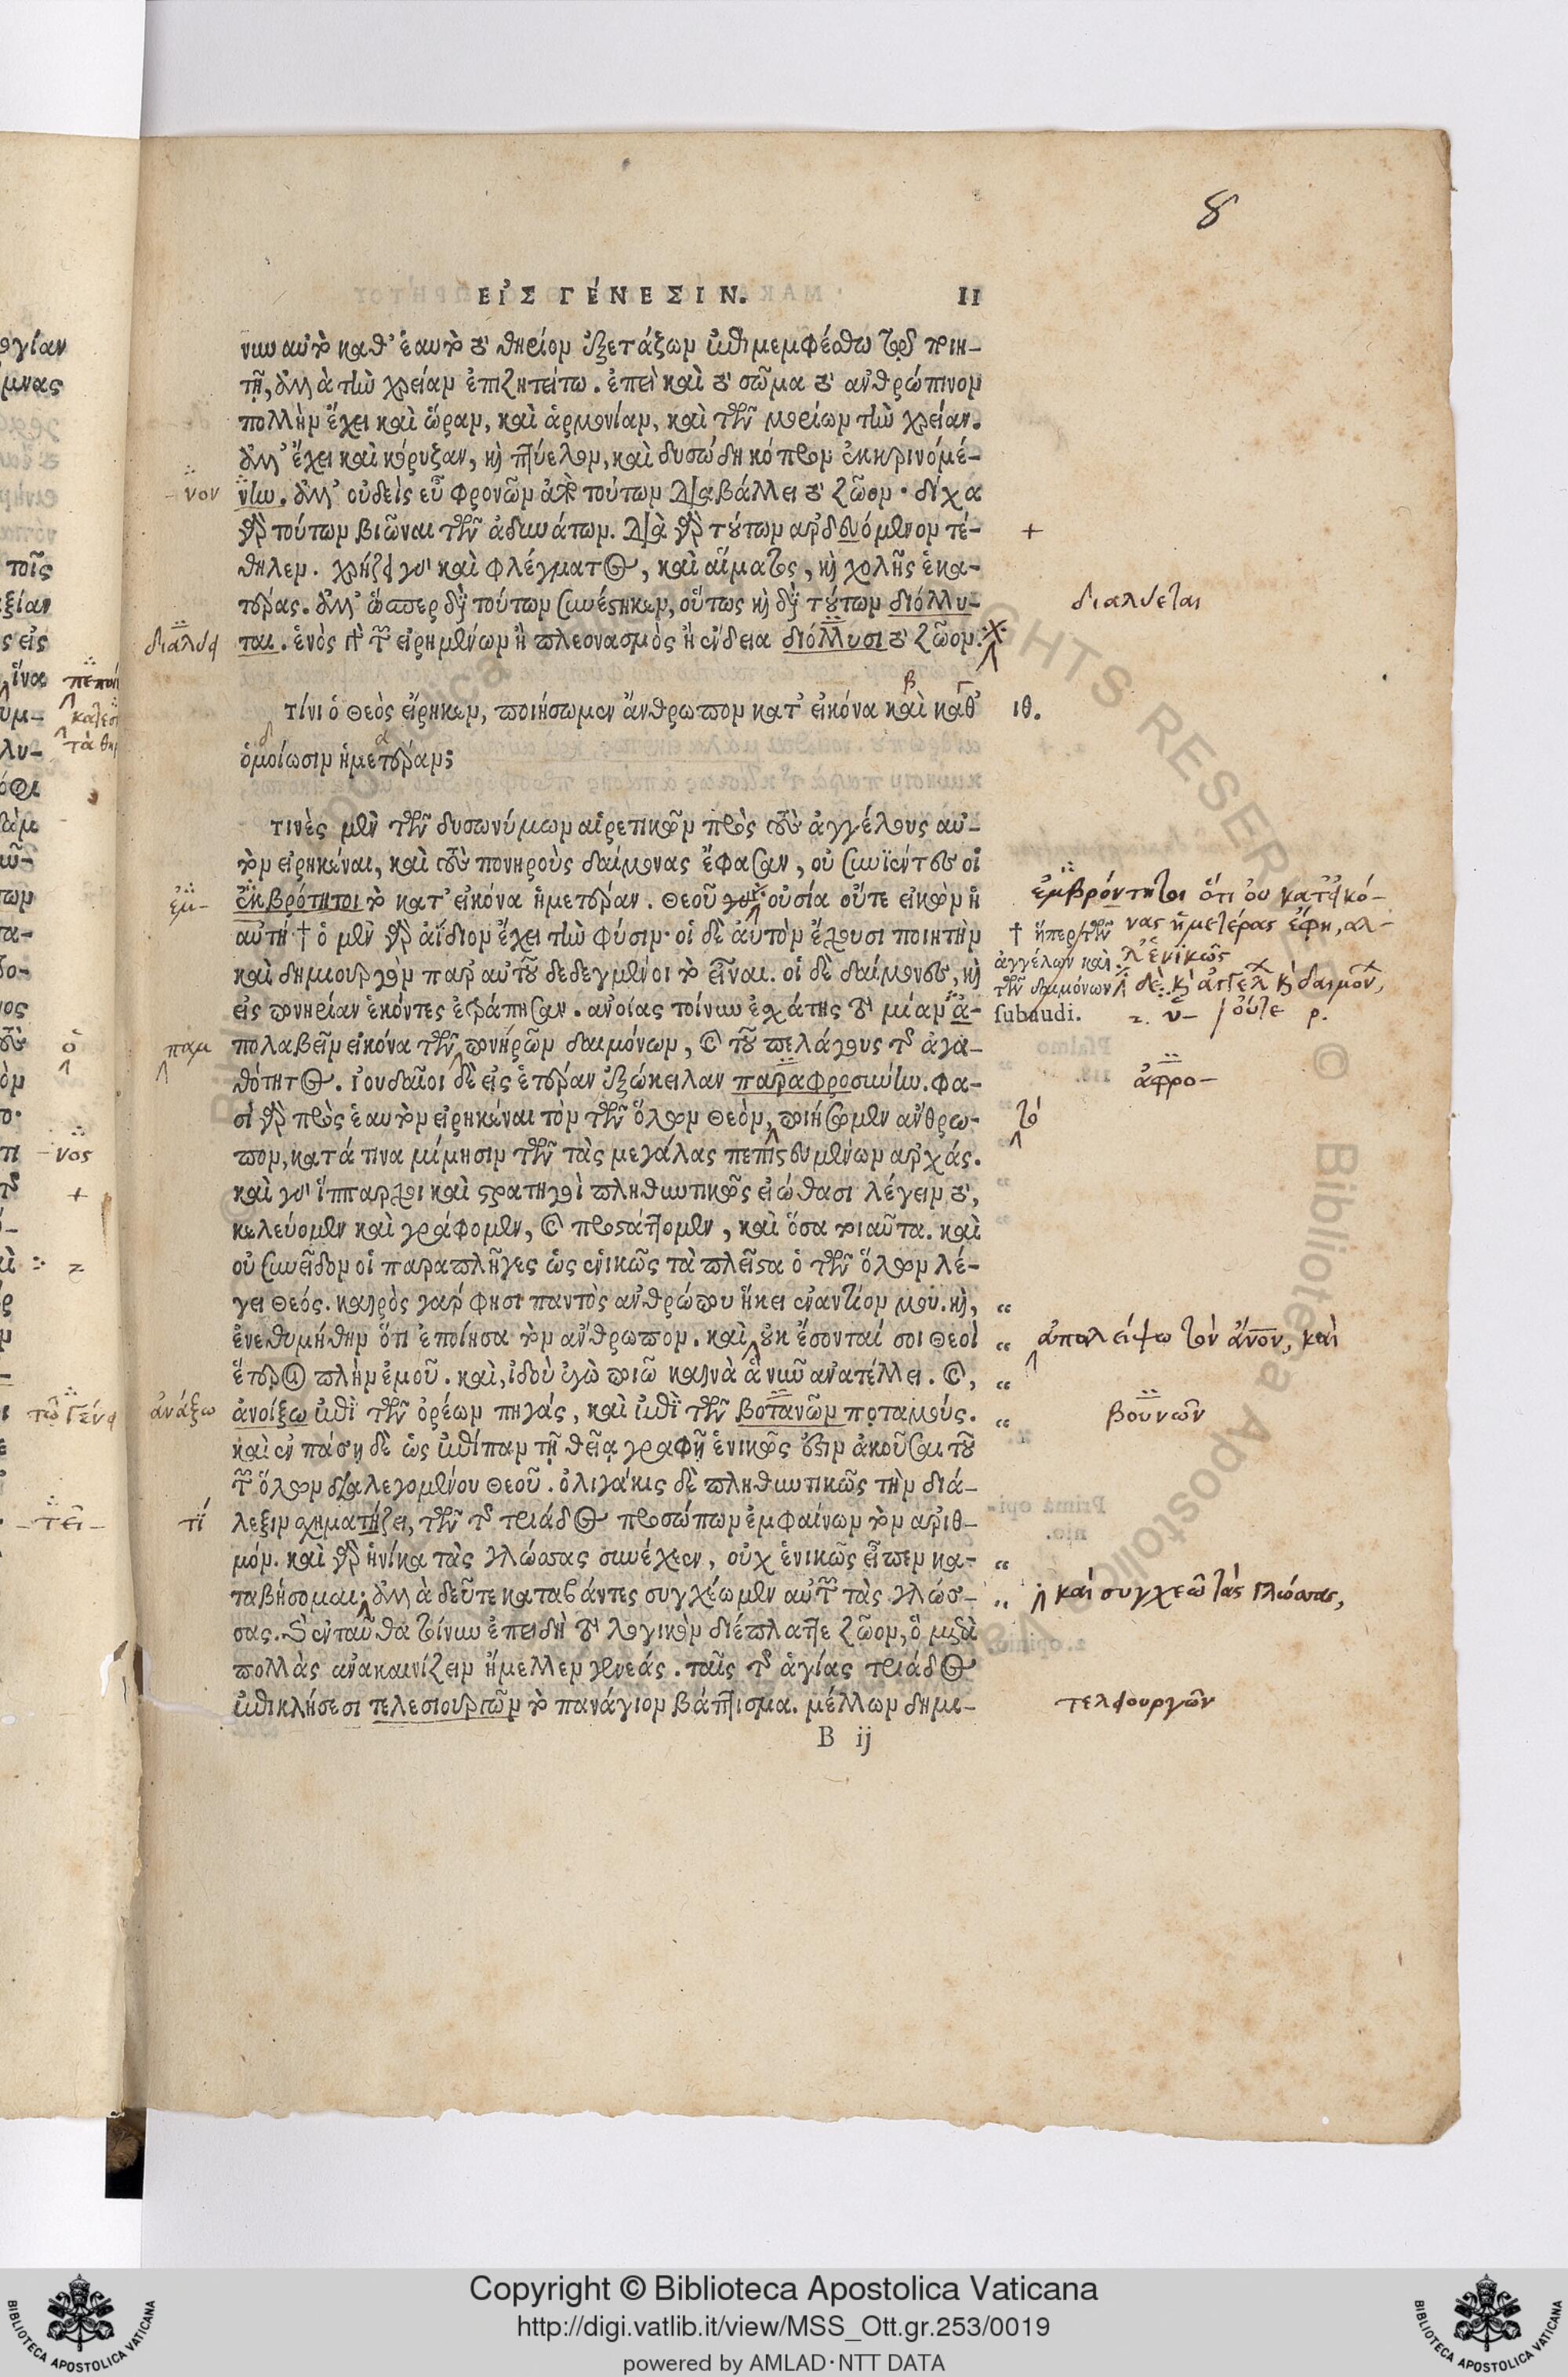 8
ΕἸΣ ΓΈΝΕΣΙΝ. 11
νυν αὐτὸ καθ᾽ ἑαυτὸ τὸ θηρίον ἐξετάζων ἐπιμεμφέσθω τῷ ποιη-
τῇ, ἀλλὰ τὴν χρείαν ἐπιζητείτω. ἐπεὶ καὶ τὸ σῶμα τὸ ἀνθρώπινον
πολλὴν ἔχει καὶ ὥραν, καὶ ἁρμονίαν, καὶ τῶν μορίων τὴν χρείαν.
ἀλλ᾽ ἔχει καὶ κόρυζαν, καὶ πτύελον, καὶ δυσώδη κόπρον ἐκκρινομέ-
νον
νην. ἀλλ᾽ οὐδεὶς εὖ φρονῶν ἀπὸ τούτων διαβάλλει τὸ ζῶον· δίχα
γὰρ τούτων βιῶναι τῶν ἀδυνάτων. διὰ γὰρ τούτων ἀρδευόμενον τέ- +
θηλεν. χρήζει γοῦν καὶ φλέγματος, καὶ αἵματος, καὶ χολῆς ἑκα-
τέρας. ἀλλ᾽ ὥσπερ διὰ τούτων συνέστηκεν, οὕτως καὶ διὰ τούτων διόλλυ-
διαλύεται
διαλύει
ται. ἑνὸς γὰρ τῶν εἰρημένων ἢ πλεονασμὸς ἢ ἔνδεια διόλλυσι τὸ ζῶον.
τίνι ὁ Θεὸς εἴρηκεν, ποιήσωμεν ἄνθρωπον κατ᾽ εἰκόνα καὶ καθ᾽ ιθ.
ὁμοίωσιν ἡμετέραν;
τινὲς μὲν τῶν δυσωνύμων αἱρετικῶν πρὸς τοὺς ἀγγέλους αὐ-
τὸν εἰρηκέναι, καὶ τοὺς πονηροὺς δαίμονας ἔφασαν, οὐ συνϊέντες οἱ
ἐμ-
ἐκβρότητοι τὸ κατ᾽ εἰκόνα ἡμετέραν. Θεοῦ οὐσία οὔτε εἰκὼν ἡ
ἐμβρόντητοι ὅτι οὐ κατ᾽ εἰκό-
νας ἡμετέρας ἔφη, αλ-
λ᾽ ἑνϊκῶς
αὐτὴ † ὁ μὲν γὰρ ἀΐδιον ἔχει τὴν φύσιν· οἱ δὲ αὐτὸν ἔχουσι ποιητὴν
† ἥπερ τῶν
ἀγγέλων καὶ
τῶν δαιμόνων
subaudi.
καὶ δημιουργὸν παρ᾽ αὐτοῦ δεδεγμένοι τὸ εἶναι. οἱ δὲ δαίμονες, καὶ
εἰς πονηρίαν ἑκόντες ἐτράπησαν. ἀνοίας τοίνυν ἐσχάτης τὸ μίαν ἀ-
παμ
πολαβεῖν εἰκόνα τῶν πονηρῶν δαιμόνων, καὶ τοῦ πελάγους τῆς ἀγα-
θότητος. Ἰουδαῖοι δὲ εἰς ἑτέραν ἐξώκειλαν παραφροσύνην. φα-
ἀφρο-
σὶ γὰρ πρὸς ἑαυτὸν εἰρηκέναι τὸν τῶν ὅλων Θεόν, ποιήσωμεν ἄνθρω-
τό
πον, κατά τινα μίμησιν τῶν τὰς μεγάλας πεπιστευμένων ἀρχάς.
καὶ γοῦν ἵππαρχοι καὶ στρατηγοὶ πληθυντικῶς εἰώθασι λέγειν τό,
κελεύομεν καὶ γράφομεν, καὶ προστάττομεν, καὶ ὅσα τοιαῦτα. καὶ
οὐ συνεῖδον οἱ παραπλῆγες ὡς ἑνικῶς τὰ πλεῖστα ὁ τῶν ὅλων λέ-
γει Θεός. καιρὸς γάρ φησι παντὸς ἀνθρώπου ἥκει ἐναντίον μου. καί, “
ἐνεθυμήθην ὅτι ἐποίησα τὸν ἄνθρωπον. καὶ, οὐκ ἔσονταί σοι Θεοὶ “
ἀπαλείψω τὸν ἄνον, καὶ
ἕτεροι πλὴν ἐμοῦ. καὶ, ἰδοὺ ἐγὼ ποιῶ καινὰ ἃ νῦν ἀνατέλλει. καὶ, “
ἀνάξω
ἀνοίξω ἐπὶ τῶν ὀρέων πηγάς, καὶ ἐπὶ τῶν βοτανῶν ποταμούς. “
βουνῶν
καὶ ἐν πάσῃ δὲ ὡς ἐπίπαν τῇ θείᾳ γραφῇ ἑνικῶς ἔστιν ἀκοῦσαι τοῦ
τῶν ὅλων διαλεγομένου Θεοῦ. ὀλιγάκις δὲ πληθυντικῶς τὴν διά-
τί
λεξιν σχηματίζει, τῶν τῆς τριάδος προσώπων ἐμφαίνων τὸν ἀριθ-
μόν. καὶ γὰρ ἡνίκα τὰς γλώσσας συνέχεεν, οὐχ ἑνικῶς εἶπεν κα- “
ταβήσομαι· ἀλλὰ δεῦτε καταβάντες συγχέωμεν αὐτῶν τὰς γλώσ- “
καὶ συγχεῶ τὰς γλώσσας,
σας. ἐνταῦθα τοίνυν ἐπειδὴ τὸ λογικὸν διέπλαττε ζῶον, ὃ μετὰ
πολλὰς ἀνακαινίζειν ἤμελλεν γενεάς. ταῖς τῆς ἁγίας τριάδος
ἐπικλήσεσι τελεσιουργῶν τὸ πανάγιον βάπτισμα. μέλλων δημι-
τελειουργῶν
B ij
Copyright © Biblioteca Apostolica Vaticana
http://digi.vatlib.it/view/MSS_Ott.gr.253/0019
powered by AMLAD·NTT DATA